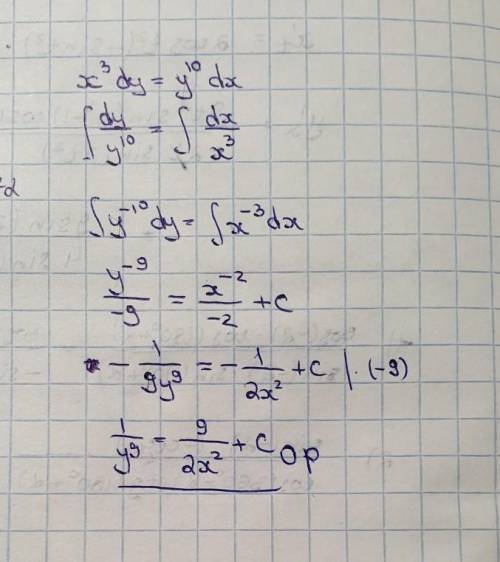 x³dy = y¹⁰ dx
∫ dy/y¹⁰ = ∫ dx/x³
∫ y⁻¹⁰ dy = ∫ x⁻³ dx
y⁻⁹/-9 = x⁻²/-2 + C
- 1/9y⁹ = - 1/2x² + C | · (-9)
1/y⁹ = 9/2x² + C ОР